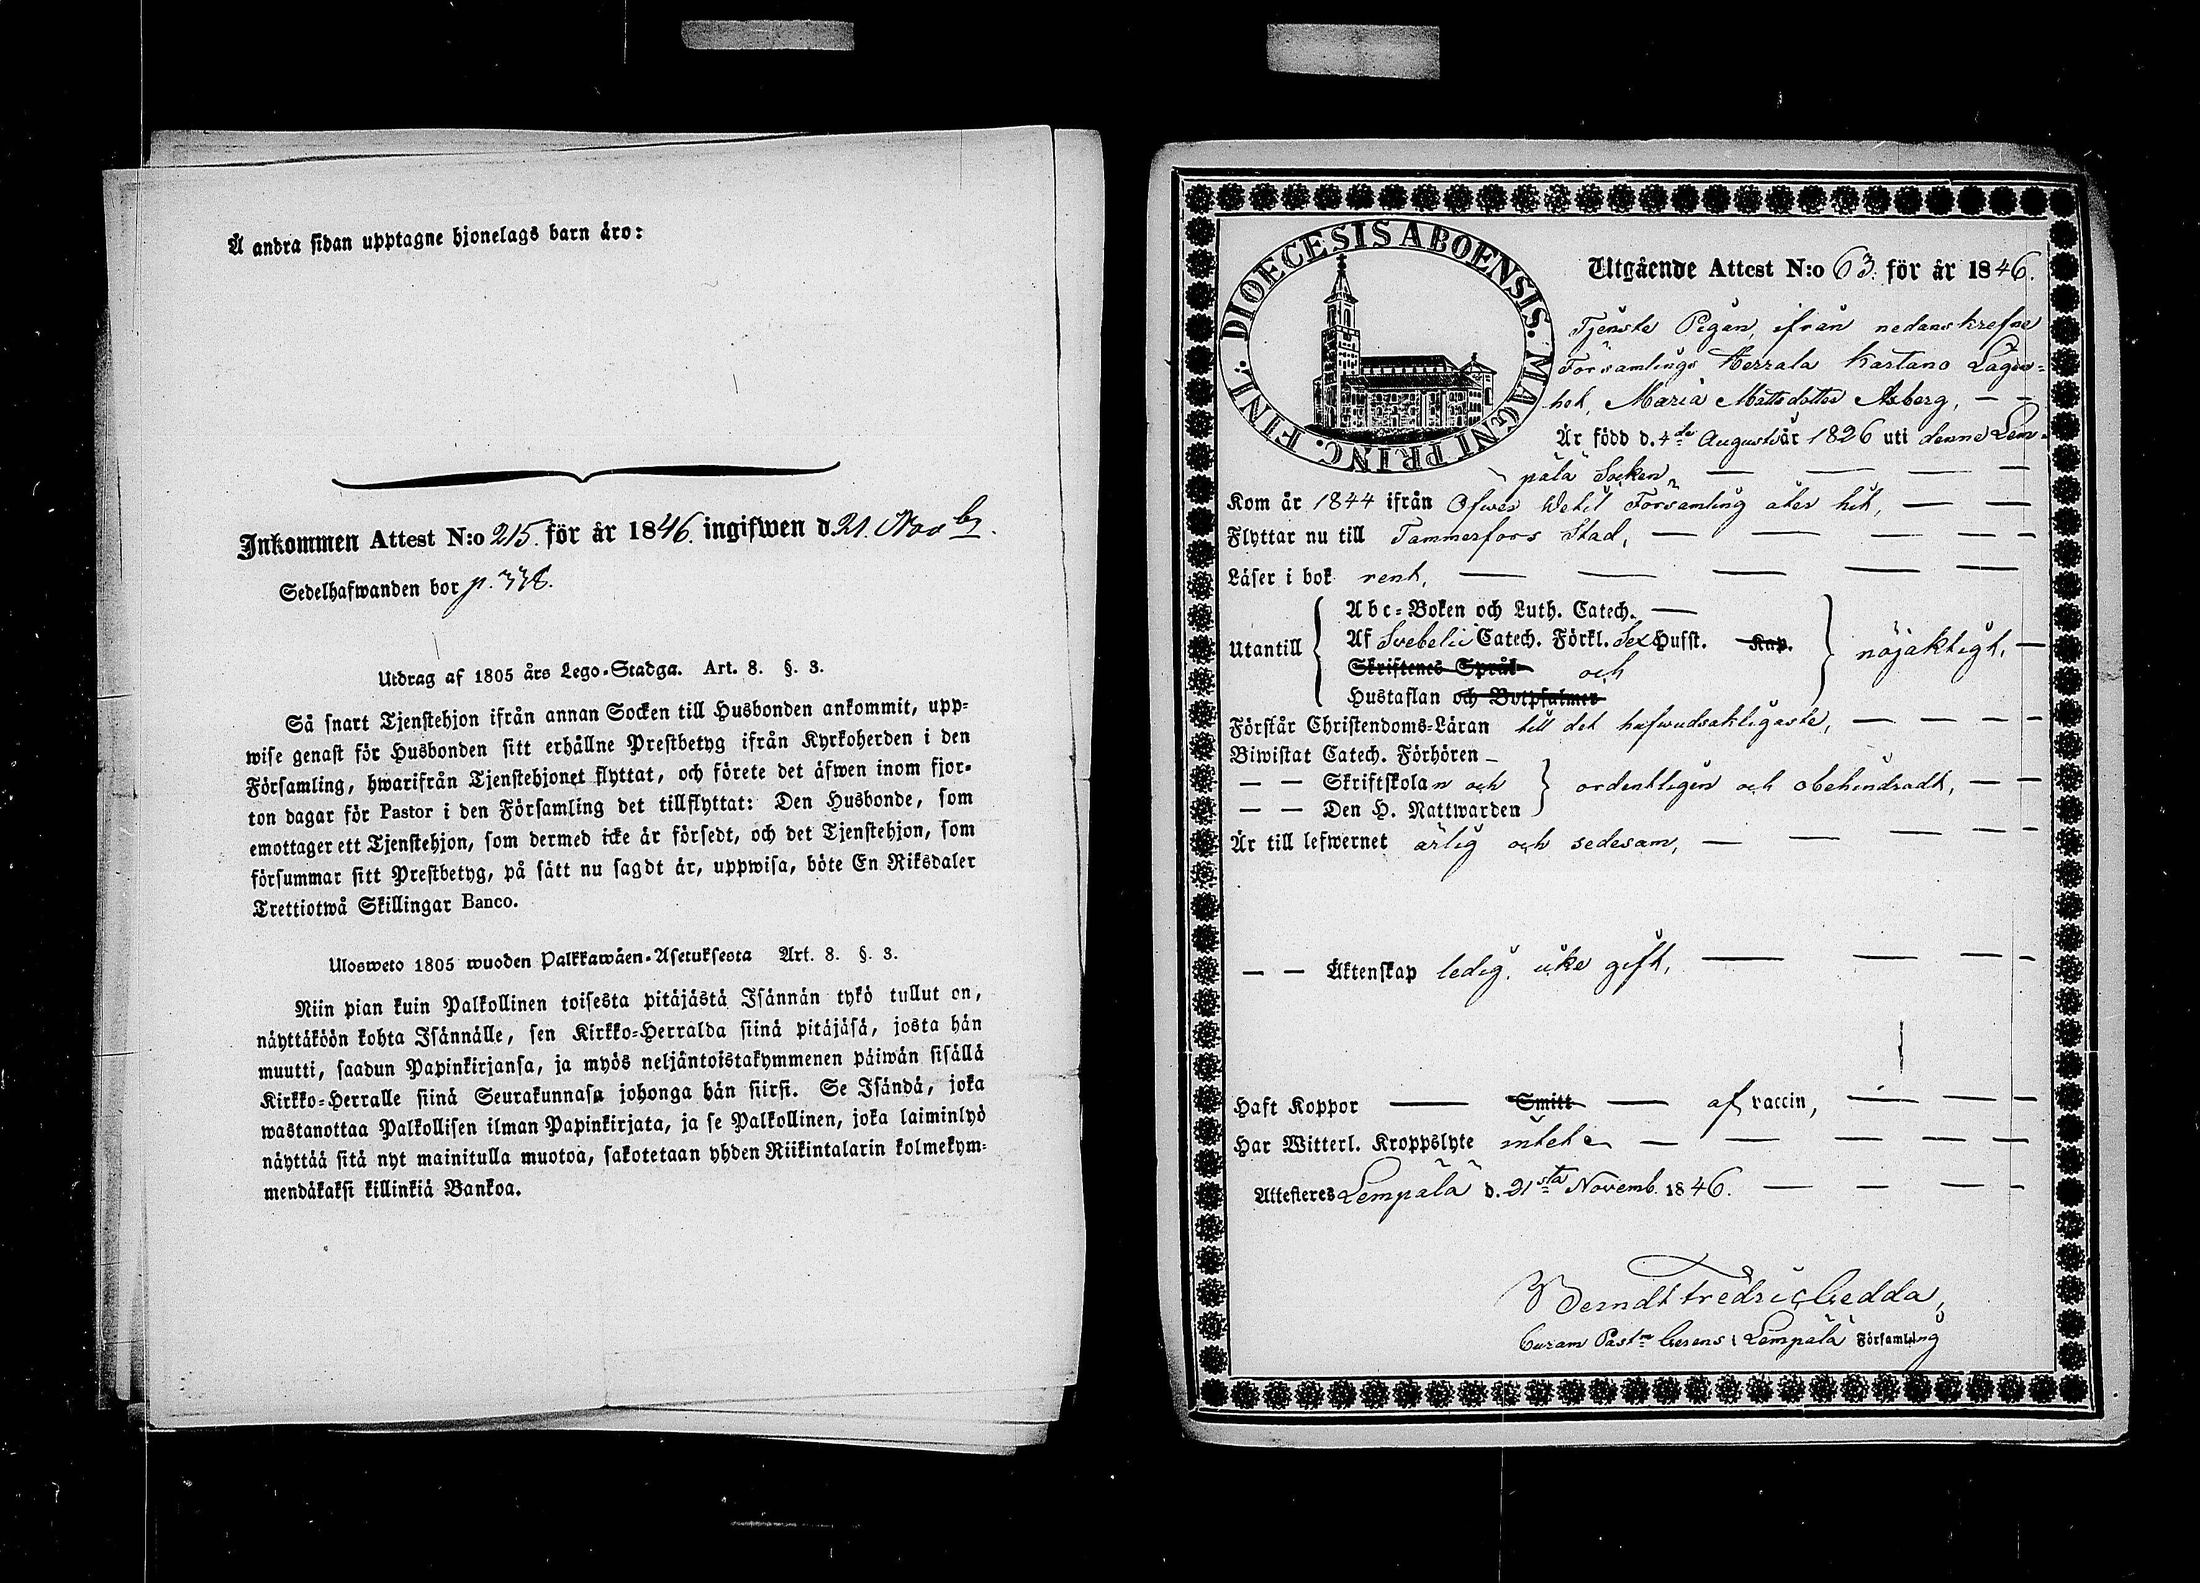 Å andra sidan upptagne hjonelags barn äro:
Inkommen Attest N:o 215. för år 1846. ingifwen d. 21. Novbr.
Sedelhafwanden bor p. 378.
Utdrag af 1805 års Lego-Stadga. Art. 8. §. 3.
Så snart Tjenstehjon ifrån annan Socken till Husbonden ankommit, upp-
wise genast för Husbonden sitt erhållne Prestbetyg ifrån Kyrkoherden i den
Församling, hwarifrån Tjenstehjonet flyttat, och förete det äfwen inom fjor-
ton dagar för Pastor i den Församling det tillflyttat: Den Husbonde, som
emottager ett Tjenstehjon, som dermed icke är försedt, och det Tjenstehjon, som
försummar sitt Prestbetyg, på sätt nu sagdt är, uppwisa, böte En Riksdaler
Trettiotwå Skillingar Banco.
Ulosweto 1805 wuoden Palkkawäen-Asetuksesta Art. 8. §. 3.
Niin pian kuin Palkollinen toisesta pitäjästä Isännän tykö tullut on,
näyttäköön kohta Isännälle, sen Kirkko-Herralda siinä pitäjäsä, josta hän
muutti, saadun Papinkirjansa, ja myös neljäntoistakymmenen päiwän sisällä
Kirkko-Herralle siinä Seurakunnasa johonga hän siirsi. Se Isändä, joka
wastanottaa Palkollisen ilman Papinkirjata, ja se Palkollinen, joka laiminlyö
näyttää sitä nyt mainitulla muotoa, sakotetaan yhden Riikintalarin kolmekym-
mendäkaksi killinkiä Bankoa.
DIOECESIS ABOENSIS. MAGNI PRINC. FINL.
Utgående Attest N:o 63. för år 1846.
Tjenste Pigan, ifrån nedanskrefne
Församlings Herrala Kartano Lägen=
het, Maria Mattsdotter Åsberg, — —
Är född d. 4de Augusti år 1826 uti denne Lem-
pälä Socken, — — — —
Kom år 1844 ifrån Öfver Wetil Församling åter hit, — —
Flyttar nu till Tammerfors Stad, — — — — —
Läser i bok rent, — — — — —
Abc-Boken och Luth. Catech. —
Utantill Af Svebelii Catech. Förkl. Sex Hufst. Kap. nöjaktigt, —
Skriftenes Språk och
Hustaflan och Botpsalmer
Förstår Christendoms-Läran till det hufvudsakligaste, — — — —
Biwistat Catech. Förhören —
— — Skriftskolan och ordentligen och obehindradt, — —
— — Den H. Nattwarden
Är till lefwernet ärlig och sedesam, — — — — —
— — Äktenskap ledig, icke gift, — — — —
Haft Koppor — Smitt — af vaccin, — — — —
Har Witterl. Kroppslyte intet — — — — — —
Attesteres Lempälä d. 21sta Novemb. 1846. — — — —
Berndt Fredric Gedda,
Curam Past:m Gerens i Lempälä Församling